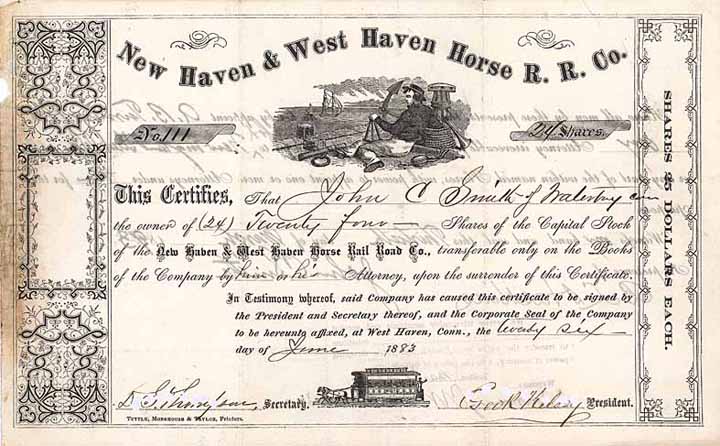 New Haven & West Haven Horse R. R. Co.
No. 111
24 Shares.
This Certifies, That John C Smith of Waterbury Conn
the owner of (24) Twenty four Shares of the Capital Stock
of the New Haven & West Haven Horse Rail Road Co., transferable only on the Books
of the Company by him or his Attorney, upon the surrender of this Certificate.
In Testimony whereof, said Company has caused this certificate to be signed by
the President and Secretary thereof, and the Corporate Seal of the Company
to be hereunto affixed, at West Haven, Conn., the twenty six
day of June 1883
Secretary.
Geo R Kelsey President.
TUTTLE, MOREHOUSE & TAYLOR, Printers.
SHARES 25 DOLLARS EACH.